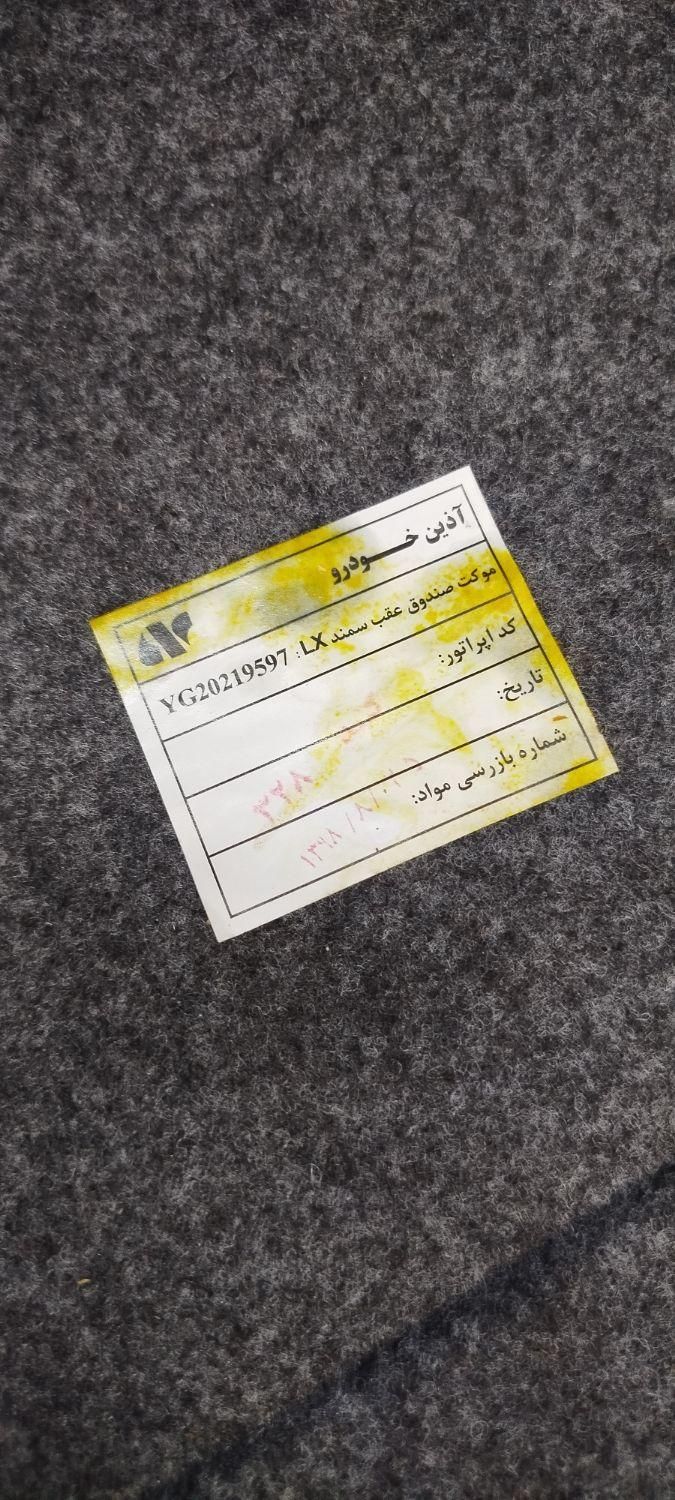 آذین خـــودرو
موکت صندوق عقب سمند LX : YG20219597
کد اپراتور:
تاریخ: ۳۲۸
شماره بازرسی مواد: